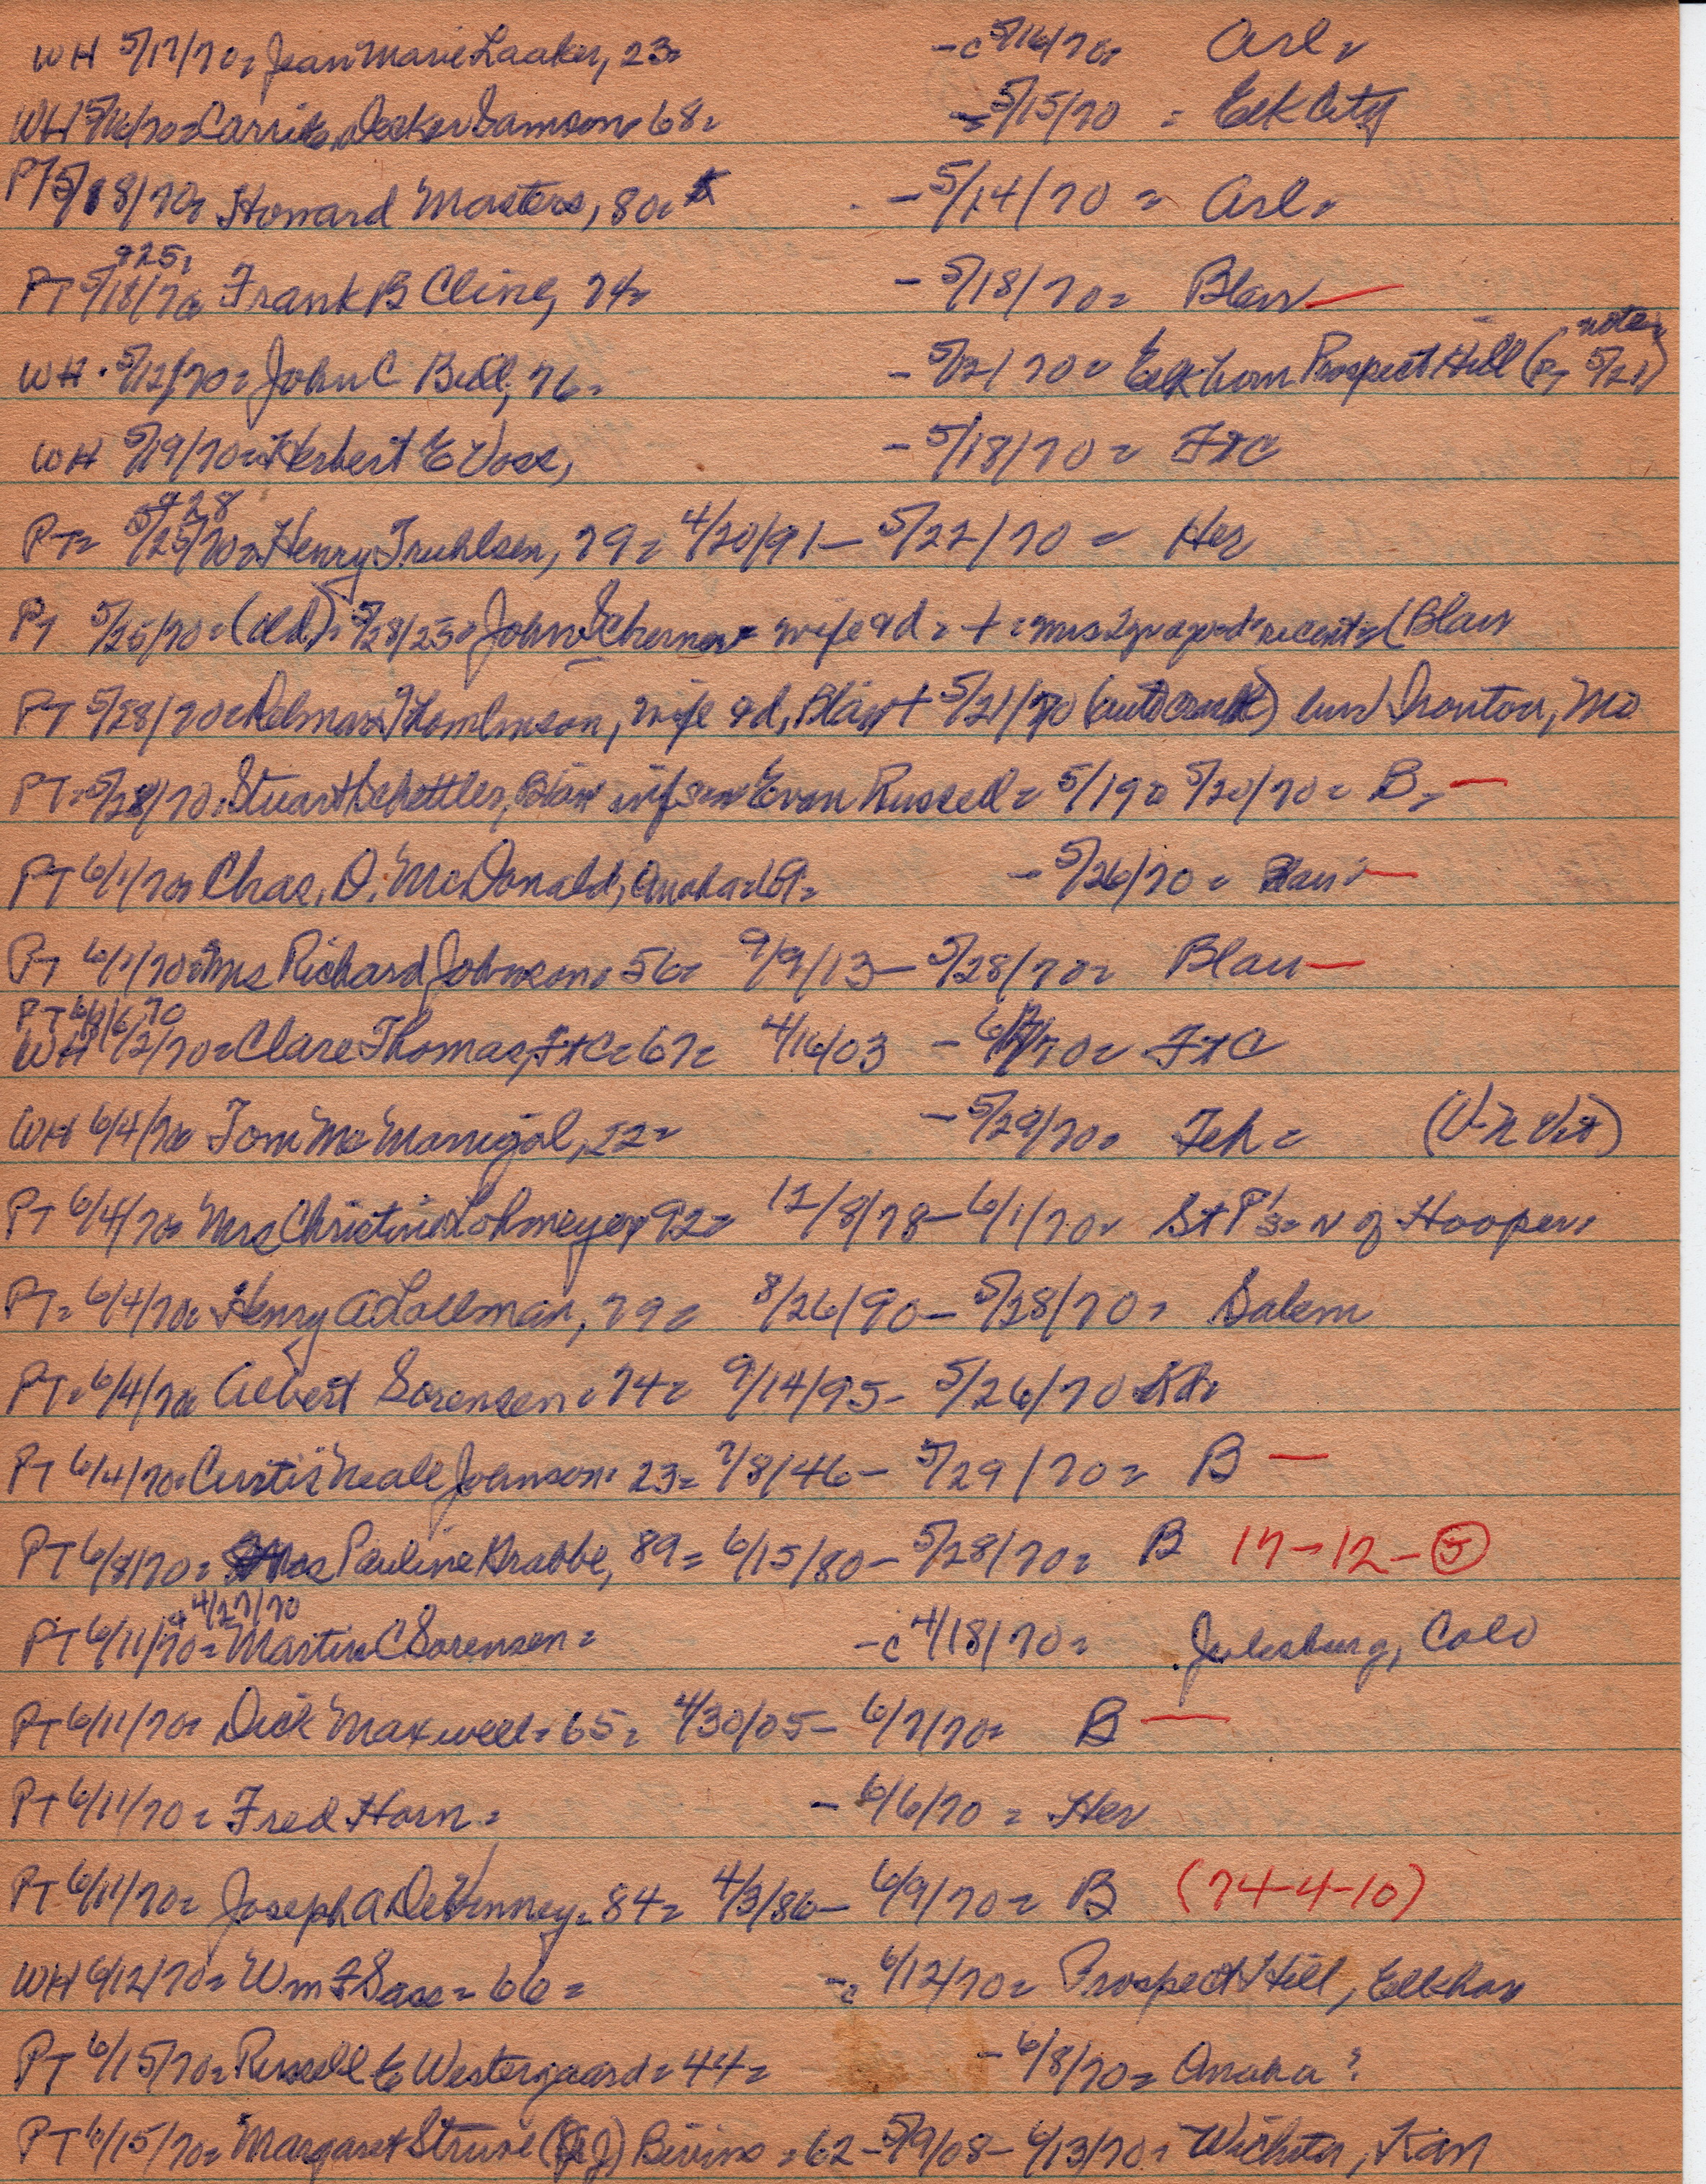 WH 5/17/70= Jean Marie Laaker, 23= -c 5/16/70= Arl=
WH 5/16/70= Carrie Decker Samson 68= - 5/15/70 = Elk City
PT 5/18/70= Howard Masters, 80= - 5/14/70 = Arl=
+25,
PT 5/18/70 Frank B Cline, 74= - 5/18/70= Blair —
note=
WH 5/12/70= John C Bull, 76= - 5/2/70= Elkhorn Prospect Hill (PT 5/21)
WH 5/19/70= Herbert E Vose, - 5/18/70= FtC
+28
PT= 5/25/70= Henry Truhlsen, 79= 4/20/91- 5/22/70 = Her
PT 5/25/70= (old)= 5/28/25= John Scherner= wife + d = + = Mrs recently Blair
PT 5/28/70= Delmar Tomlinson, wife + d, Blair + 5/21/70 (auto crash) bur Ironton, Mo
PT= 5/28/70= Stuart Schettler, Blair inf son Evan Russell= 5/19= 5/20/70= B= —
PT 6/1/70= Chas. D. McDonald, Omaha= 69= - 5/26/70= Blair= —
PT 6/1/70= Mrs Richard Johnson= 56= 9/9/13- 5/28/70= Blair —
PT 6/8/70
WH 6/2/70= Clare Thomas, FtC= 67= 4/16/03 - /70= FtC
WH 6/4/70 Tom McManigal, 22= - 5/29/70= Tek= (V-n Vet)
PT 6/4/70= Mrs Christine Lohmeyer, 92= 12/8/78- 6/1/70= St P's= N of Hooper=
PT= 6/4/70= Henry A Lallman, 79= 8/26/90- 5/28/70= Salem
PT= 6/4/70= Albert Sorensen= 74= 9/14/95- 5/26/70
PT 6/4/70= Curtis Neale Johnson= 23= 7/8/46- 5/29/70= B —
PT 6/8/70= Mrs Pauline Krabbe, 89= 6/15/80- 5/28/70= B 17-12-5
+ 4/27/70
PT 6/11/70= Martin C Sorensen= -c 4/18/70= Julesburg, Colo
PT 6/11/70= Dick Maxwell= 65= 4/30/05- 6/7/70= B —
PT 6/11/70= Fred Horn= - 6/6/70= Her
PT 6/11/70= Joseph A DeKinney= 84= 4/3/86- 6/9/70= B (74-4-10)
WH 6/12/70= Wm F Sass= 66= -c 6/12/70= Prospect Hill, Elkhorn
PT 6/15/70= Russell E Westergaard= 44= - 6/8/70= Omaha?
PT 6/15/70= Margaret Struve Bivins= 62- 5/9/08- 6/13/70= Wichita, Kan